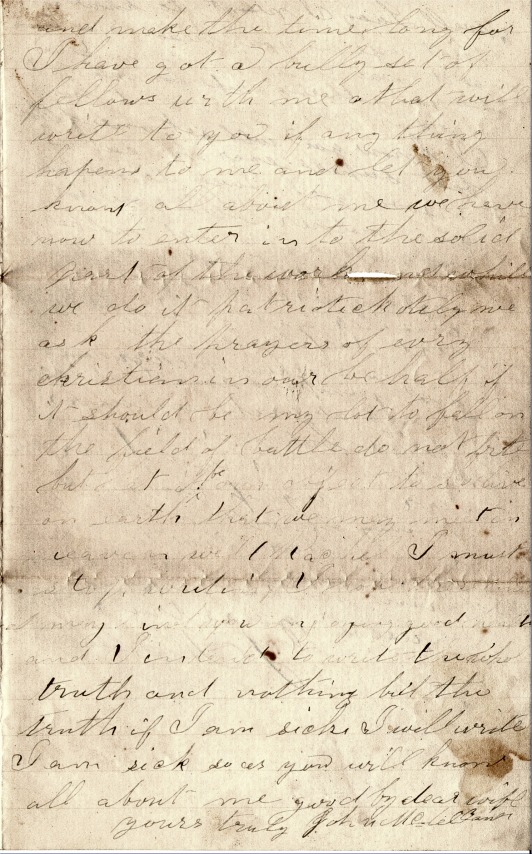 and make the time long for
I have got a bully set of
fellows with me a that will
write to you if any thing
happens to me and let you
know al about me we have
now to enter in to the solid
part of the work and while
we do it patriotick we
ask the prayers of every
christian in our behalf if
it should be my lot to fall on
the field of battle do not fret
but let it be your object to
on earth that we may meet in
heaven I must
stop
enjoying good
and I intend to write the
truth and nothing but the
truth if I am sick I will write
I am sick so as you will know
all about me good by dear wife
yours truly John